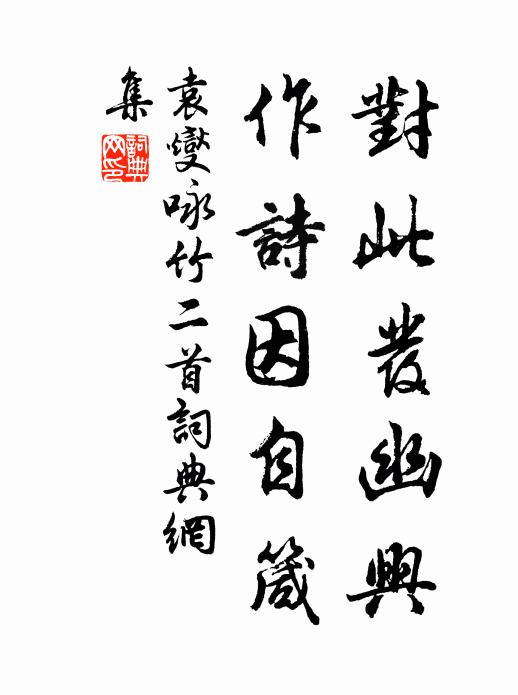 對此發幽興
作詩因自箴
袁燮咏竹二首詞典網
集
詞典网印